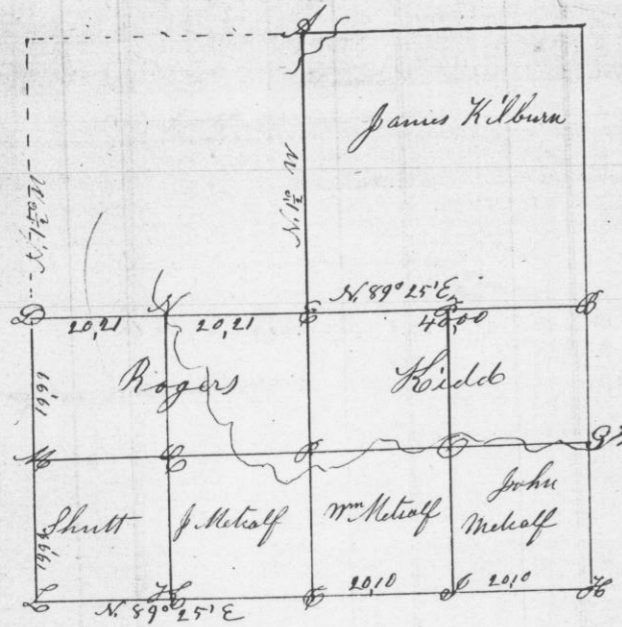 A
James Kilburn
N. 1½ W
N. 1½ W
N. 89° 25' E
D
N
E
B
20,21
20,21
40,00
19,99
Rogers
Kidd
M
C
P
O
G
Shutt
J Metcalf
Wm Metcalf
John
Metcalf
19,99
20,10
20,10
L
K
E
J
H
N. 89° 25' E